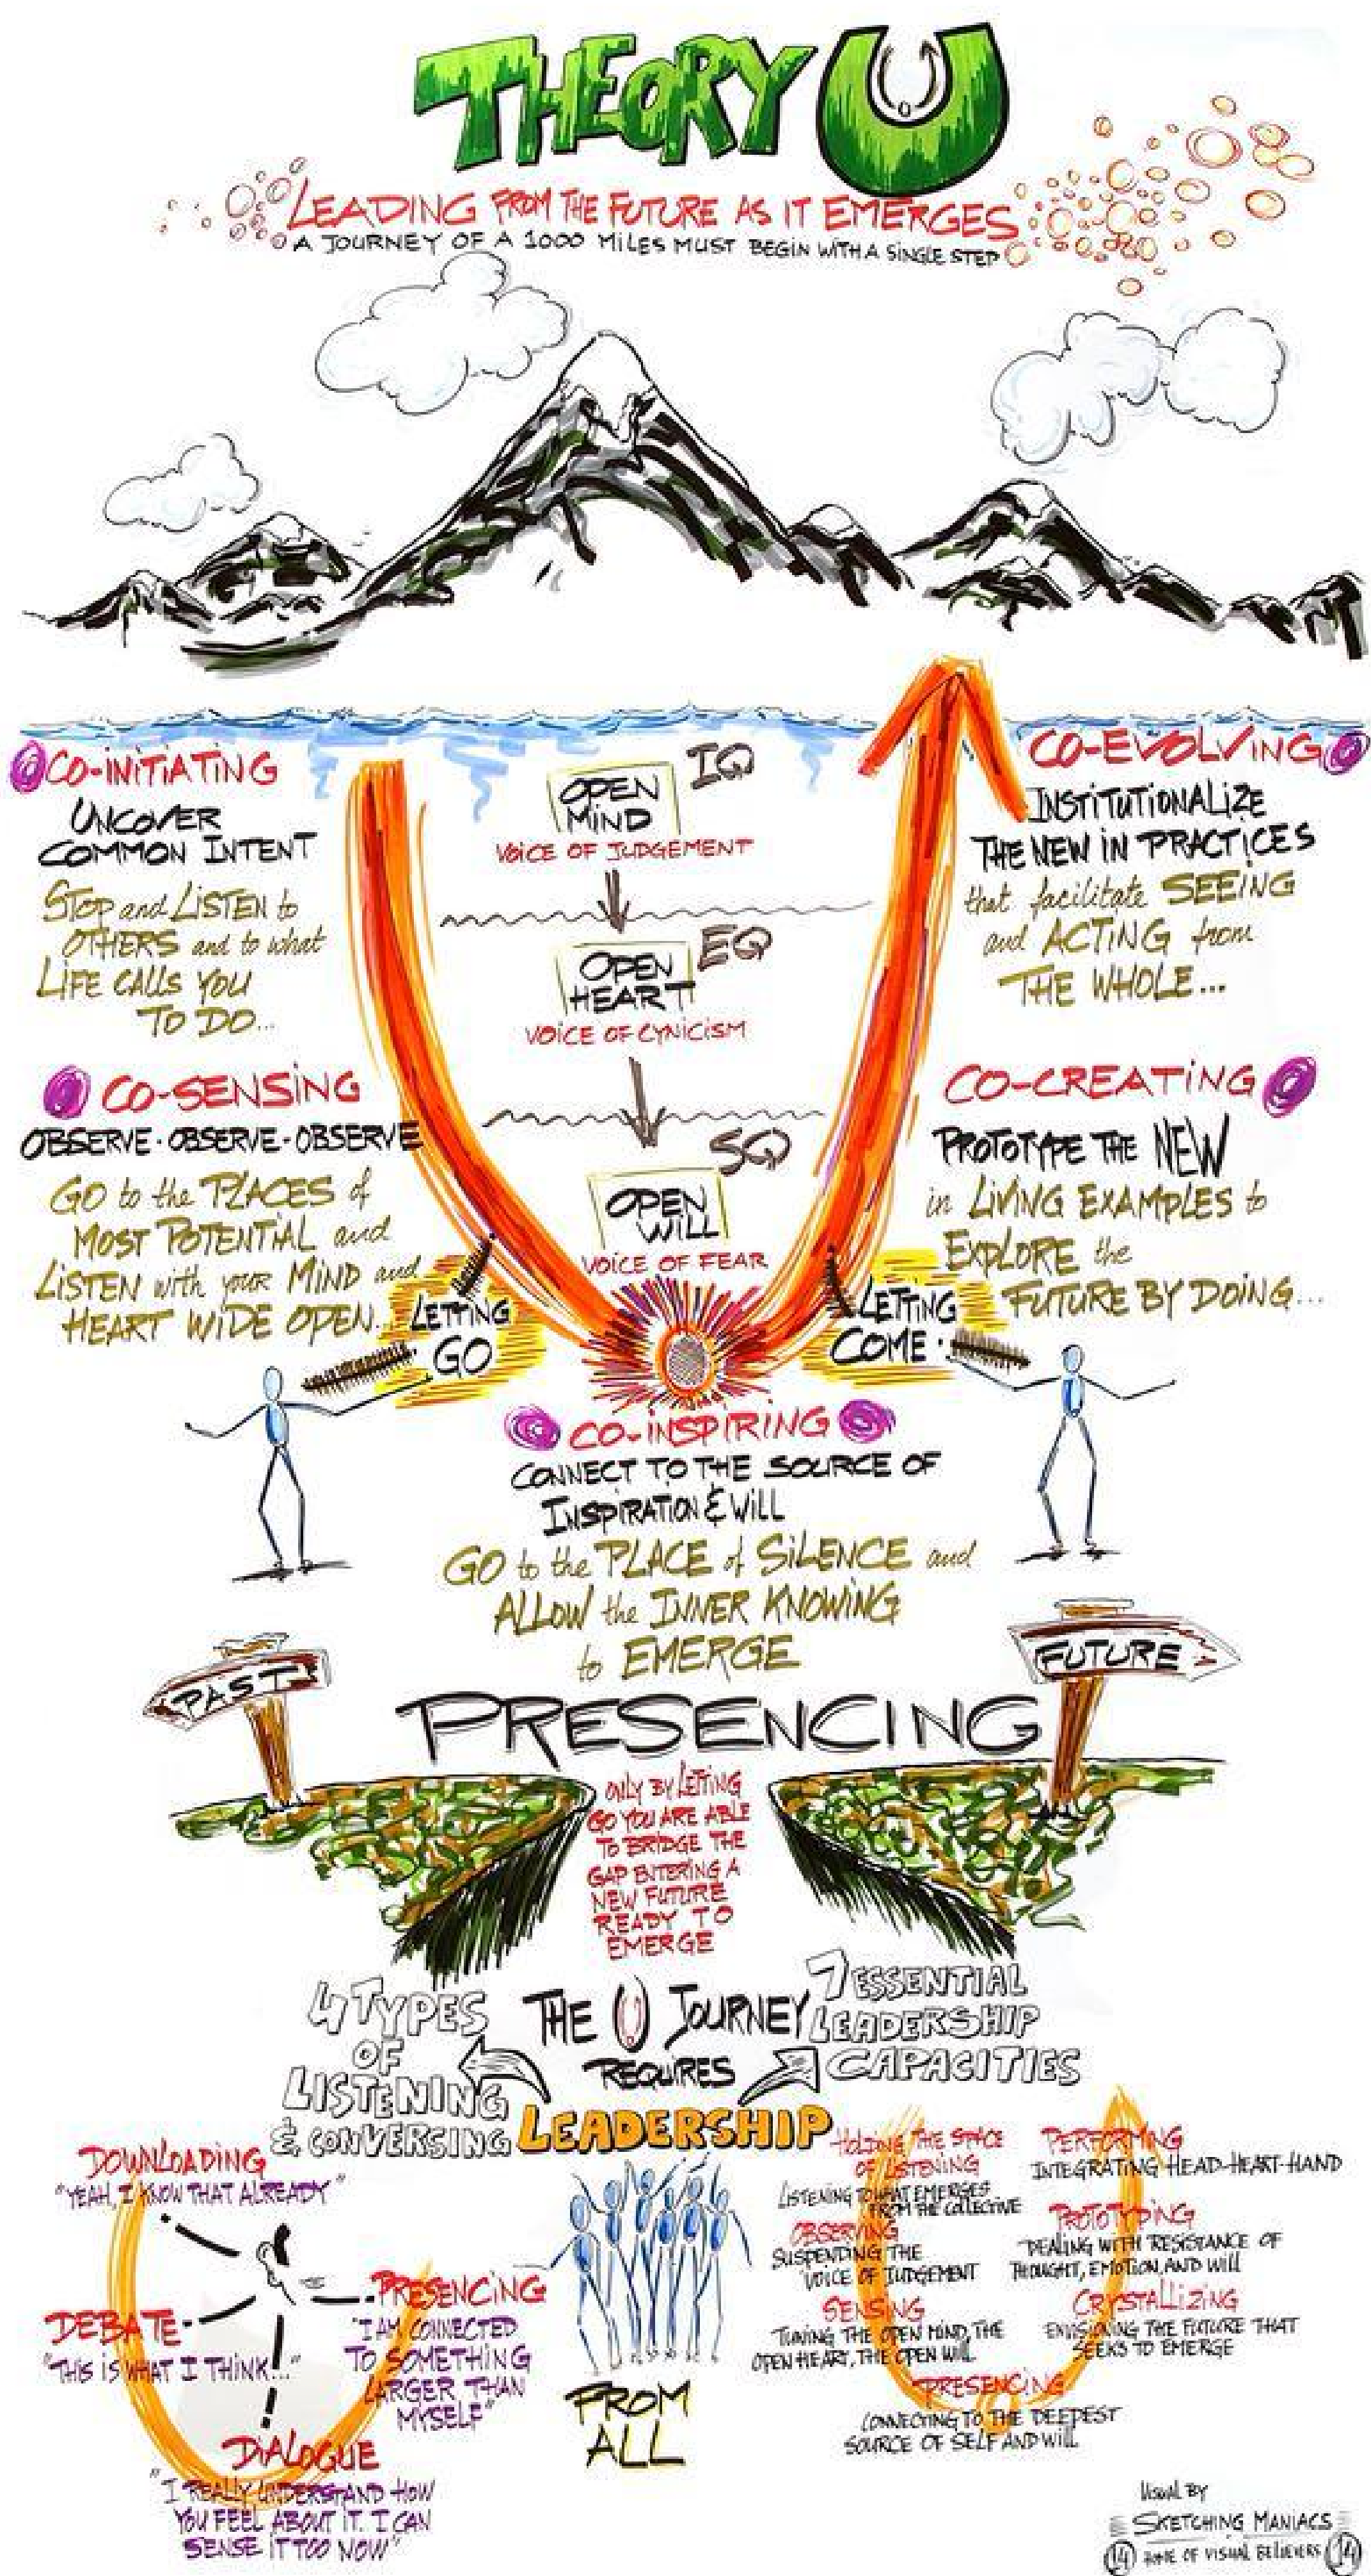 THEORY U
LEADING FROM THE FUTURE AS IT EMERGES
A JOURNEY OF A 1000 MILES MUST BEGIN WITH A SINGLE STEP
CO-INITIATING
UNCOVER
COMMON INTENT
STOP and LISTEN to
OTHERS and to what
LIFE CALLS YOU
TO DO...
CO-SENSING
OBSERVE - OBSERVE - OBSERVE
GO to the PLACES of
MOST POTENTIAL and
LISTEN with your MIND and
HEART WIDE OPEN...
LETTING
GO
IQ
OPEN
MIND
VOICE OF JUDGEMENT
EQ
OPEN
HEART
VOICE OF CYNICISM
SQ
OPEN
WILL
VOICE OF FEAR
CO-EVOLVING
INSTITUTIONALIZE
THE NEW IN PRACTICES
that facilitate SEEING
and ACTING from
THE WHOLE...
CO-CREATING
PROTOTYPE THE NEW
in LIVING EXAMPLES to
EXPLORE the
FUTURE BY DOING...
LETTING
COME.
CO-INSPIRING
CONNECT TO THE SOURCE OF
INSPIRATION & WILL
GO to the PLACE of SILENCE and
ALLOW the INNER KNOWING
to EMERGE
PAST
FUTURE
PRESENCING
ONLY BY LETTING
GO YOU ARE ABLE
TO BRIDGE THE
GAP ENTERING A
NEW FUTURE
READY TO
EMERGE
4 TYPES
OF
LISTENING
& CONVERSING
THE U JOURNEY
REQUIRES
LEADERSHIP
7 ESSENTIAL
LEADERSHIP
CAPACITIES
DOWNLOADING
"YEAH, I KNOW THAT ALREADY"
DEBATE
"THIS IS WHAT I THINK..."
DIALOGUE
"I REALLY UNDERSTAND HOW
YOU FEEL ABOUT IT. I CAN
SENSE IT TOO NOW"
PRESENCING
"I AM CONNECTED
TO SOMETHING
LARGER THAN
MYSELF"
FROM
ALL
HOLDING THE SPACE
OF LISTENING
LISTENING TO WHAT EMERGES
FROM THE COLLECTIVE
OBSERVING
SUSPENDING THE
VOICE OF JUDGEMENT
SENSING
TUNING THE OPEN MIND, THE
OPEN HEART, THE OPEN WILL
PRESENCING
CONNECTING TO THE DEEPEST
SOURCE OF SELF AND WILL
PERFORMING
INTEGRATING HEAD-HEART-HAND
PROTOTYPING
DEALING WITH RESISTANCE OF
THOUGHT, EMOTION, AND WILL
CRYSTALLIZING
ENVISIONING THE FUTURE THAT
SEEKS TO EMERGE
VISUAL BY
SKETCHING MANIACS
14 HOME OF VISUAL BELIEVERS 14